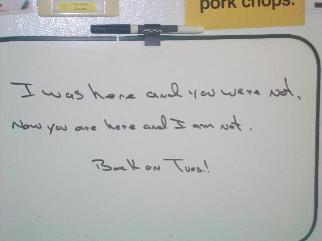 pork chops.
I was here and you were not,
Now you are here and I am not.
Back on Tues.!